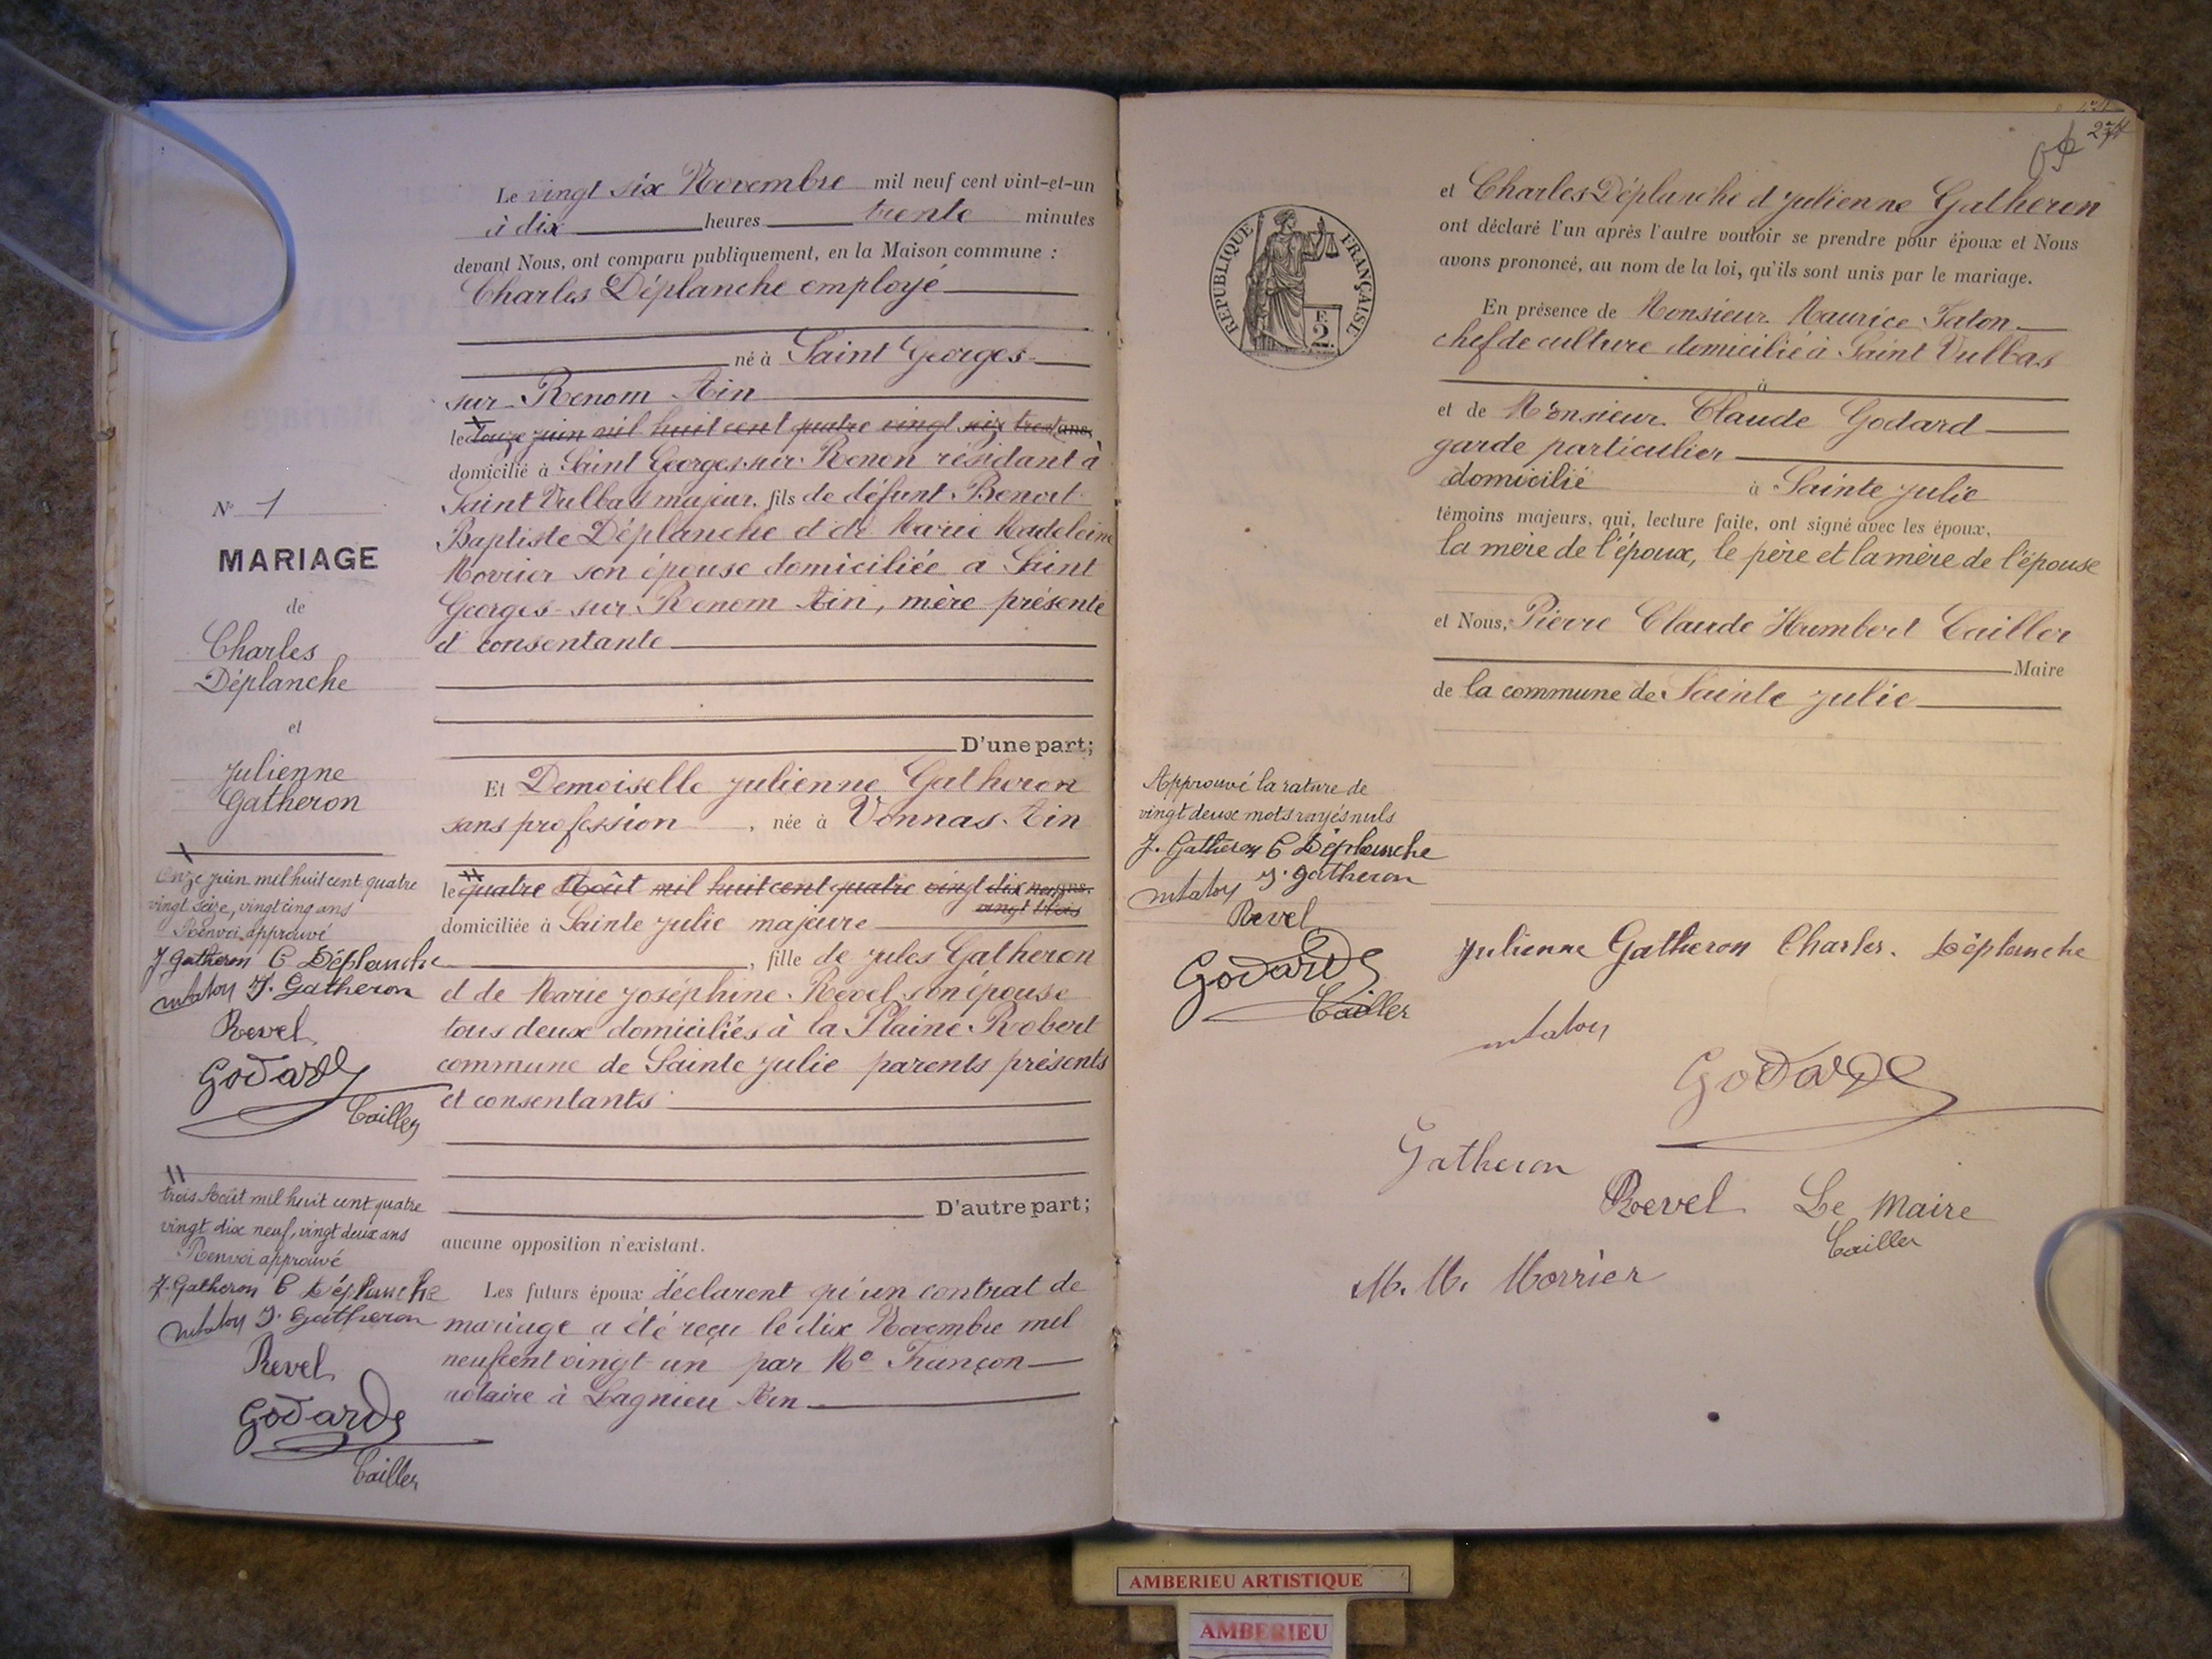 N° 1
MARIAGE
de
Charles
Déplanche
et
Julienne
Gatheron
onze juin mil huit cent quatre
vingt seize, vingt cinq ans
Renvoi approuvé
J Gatheron C Déplanche
J. Gatheron
Revel
Godard
Cailler
trois Août mil huit cent quatre
vingt dix neuf, vingt deux ans
Renvoi approuvé
J. Gatheron C Déplanche
J. Gatheron
Revel
Godard
Cailler
Le vingt six Novembre mil neuf cent vint-et-un
à dix heures trente minutes
devant Nous, ont comparu publiquement, en la Maison commune :
Charles Déplanche employé
né à Saint Georges
sur Renom Ain
le douze juin mil huit cent quatre vingt six ans
domicilié à Saint Georges sur Renon résidant à
Saint Vulbas majeur, fils de défunt Benoit
Baptiste Déplanche et de Marie Madeleine
Morrier son épouse domiciliée a Saint
Georges-sur-Renom Ain, mère présente
et consentante
D'une part;
Et Demoiselle Julienne Gatheron
sans profession, née à Vonnas Ain
le quatre Août mil huit cent quatre vingt dix neuf ans
vingt trois
domiciliée à Sainte Julie majeure
, fille de Jules Gatheron
et de Marie Joséphine Revel son épouse
tous deux domiciliés à la Plaine Robert
commune de Sainte Julie parents présents
et consentants
D'autre part;
aucune opposition n'existant.
Les futurs époux déclarent qu'un contrat de
mariage a été reçu le dix Novembre mil
neuf cent vingt-un par Me Françon
notaire à Lagnieu Ain
274
REPUBLIQUE FRANÇAISE
F.
2
et Charles Déplanche et Julienne Gatheron
ont déclaré l'un après l'autre vouloir se prendre pour époux et Nous
avons prononcé, au nom de la loi, qu'ils sont unis par le mariage.
En présence de Monsieur Maurice Talon
chef de culture domicilié à Saint Vulbas
à
et de Monsieur Claude Godard
garde particulier
domicilié à Sainte Julie
témoins majeurs, qui, lecture faite, ont signé avec les époux,
la mère de l'époux, le père et la mère de l'épouse
et Nous, Pierre Claude Humbert Cailler
Maire
de la commune de Sainte Julie
Approuvé la rature de
vingt deux mots rayés nuls
J. Gatheron C Déplanche
J. Gatheron
Revel
Godard
Cailler
Julienne Gatheron Charles. Déplanche
Godard
Gatheron
Revel Le Maire
Cailler
M. M. Morrier
AMBERIEU ARTISTIQUE
AMBERIEU